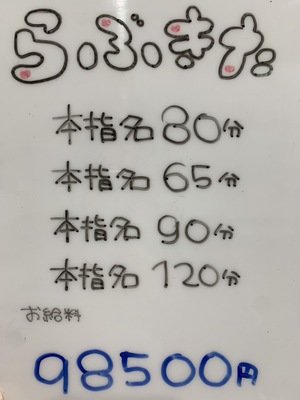 らぶまな
本指名 80分
本指名 65分
本指名 90分
本指名 120分
お給料
98500円